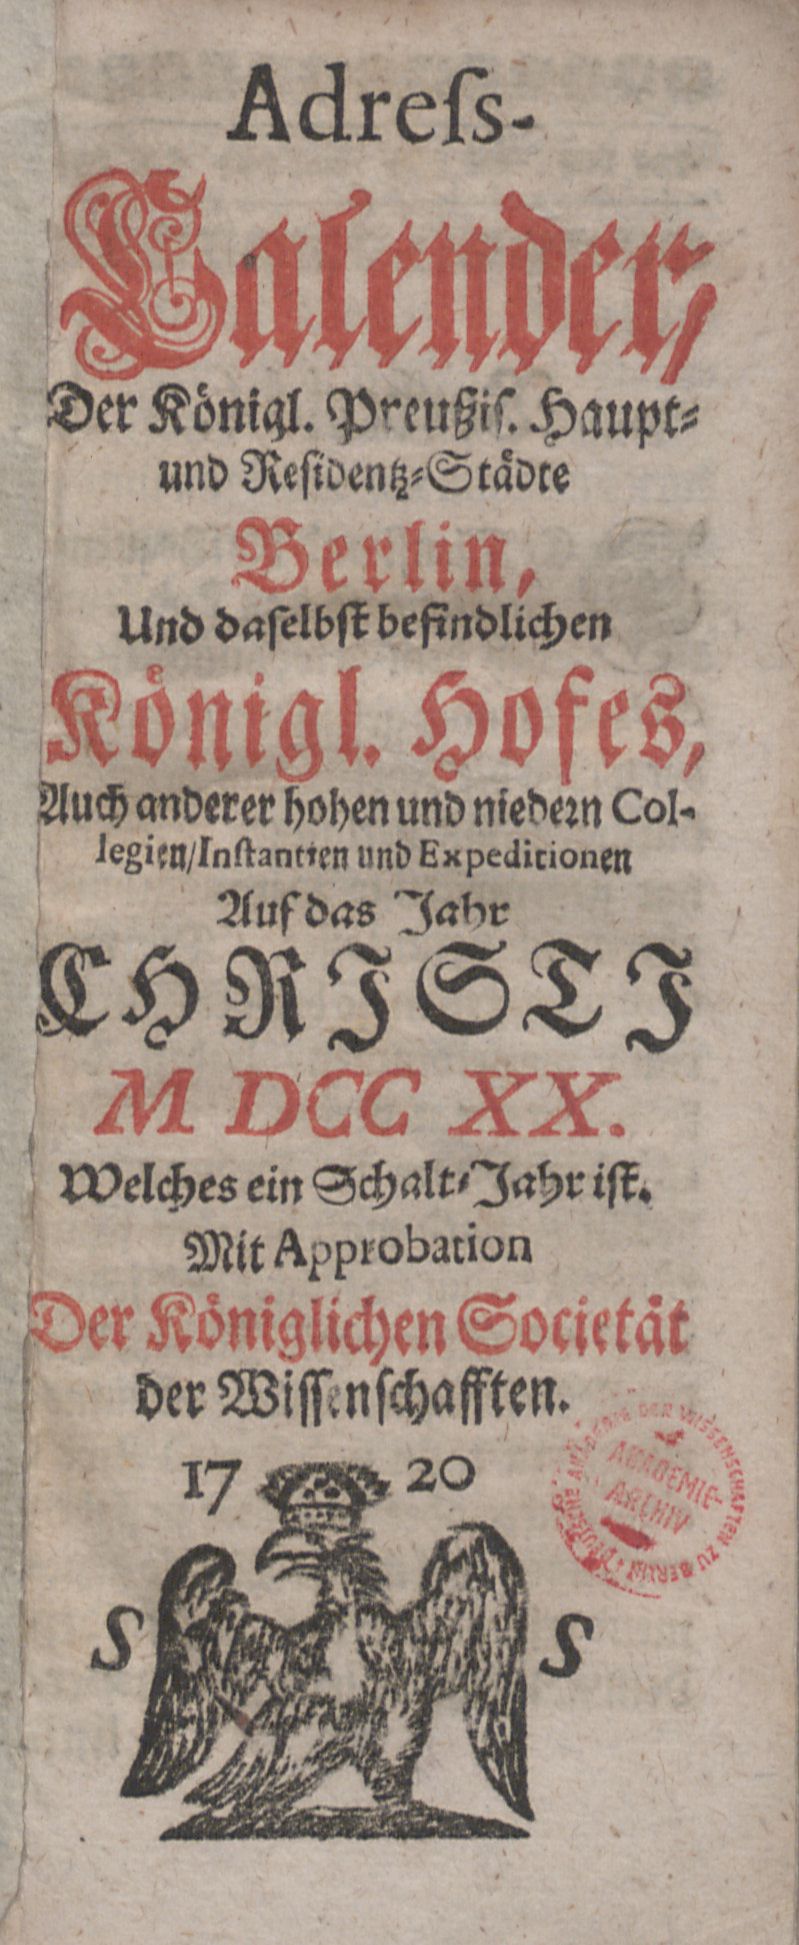 Adreſs-
Calender,
Der Königl. Preußiſ. Haupt-
und Reſidentz-Städte
Berlin,
Und daſelbſt befindlichen
Königl. Hofes,
Auch anderer hohen und niedern Col-
legien/Inſtantien und Expeditionen
Auf das Jahr
CHRISTI
M DCC XX.
Welches ein Schalt-Jahr iſt.
Mit Approbation
Der Königlichen Societät
der Wiſſenſchafften.
17 20
S S
DEUTSCHE AKADEMIE DER WISSENSCHAFTEN ZU BERLIN
AKADEMIE-
ARCHIV